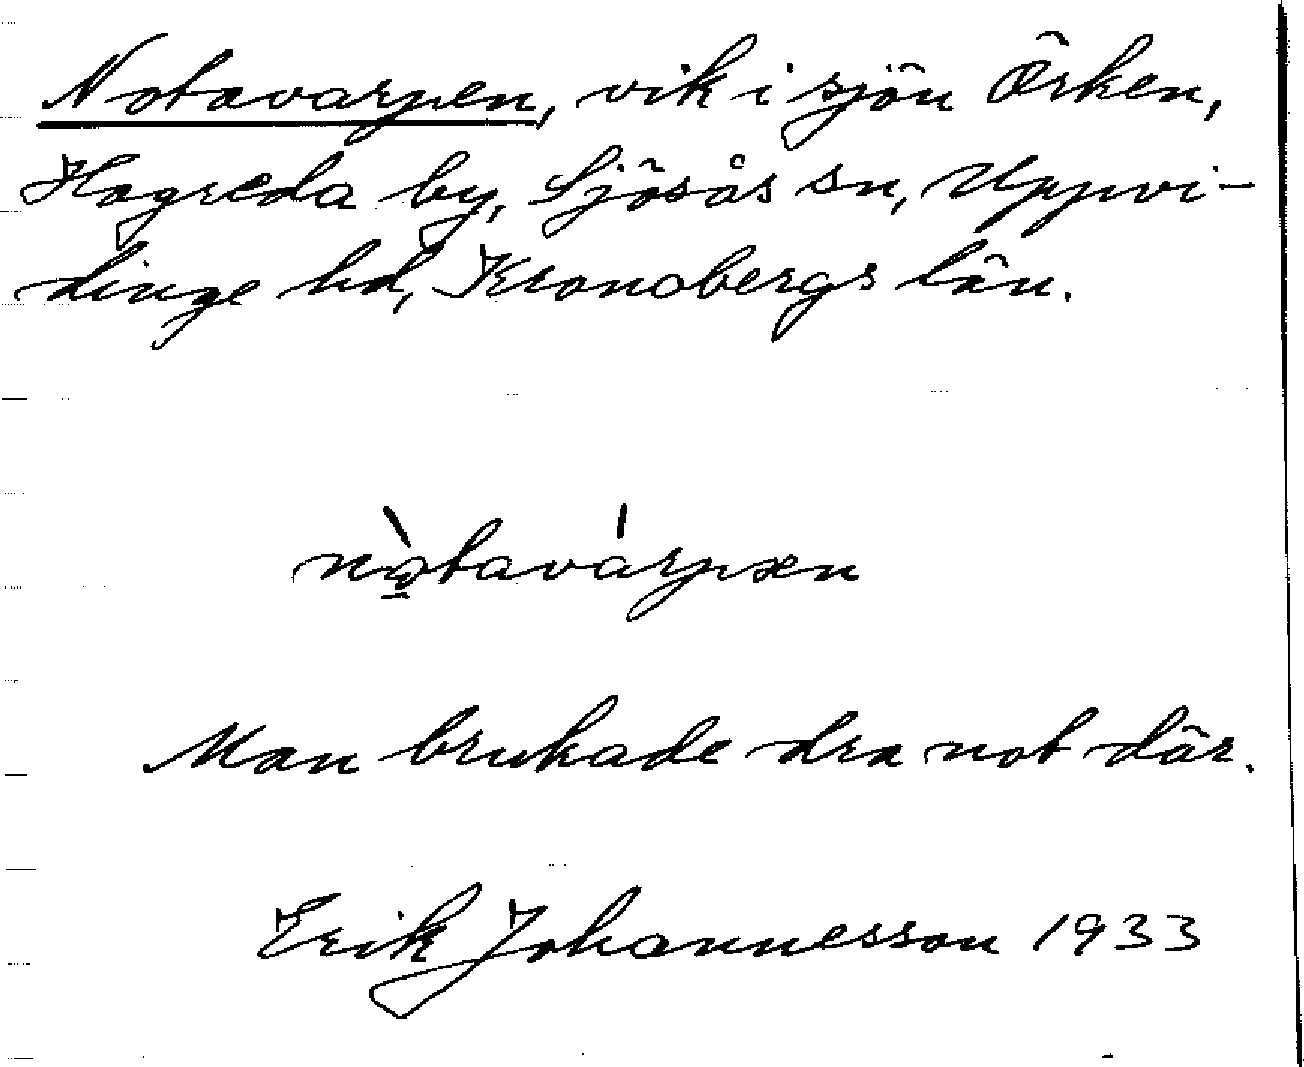 Notavarpen, vik i sjön Örken,
Hagreda by, Sjösås sn, Uppvi-
dinge hd, Kronobergs län.
nò̱tavárpæn
Man brukade dra not där.
Erik Johannesson 1933